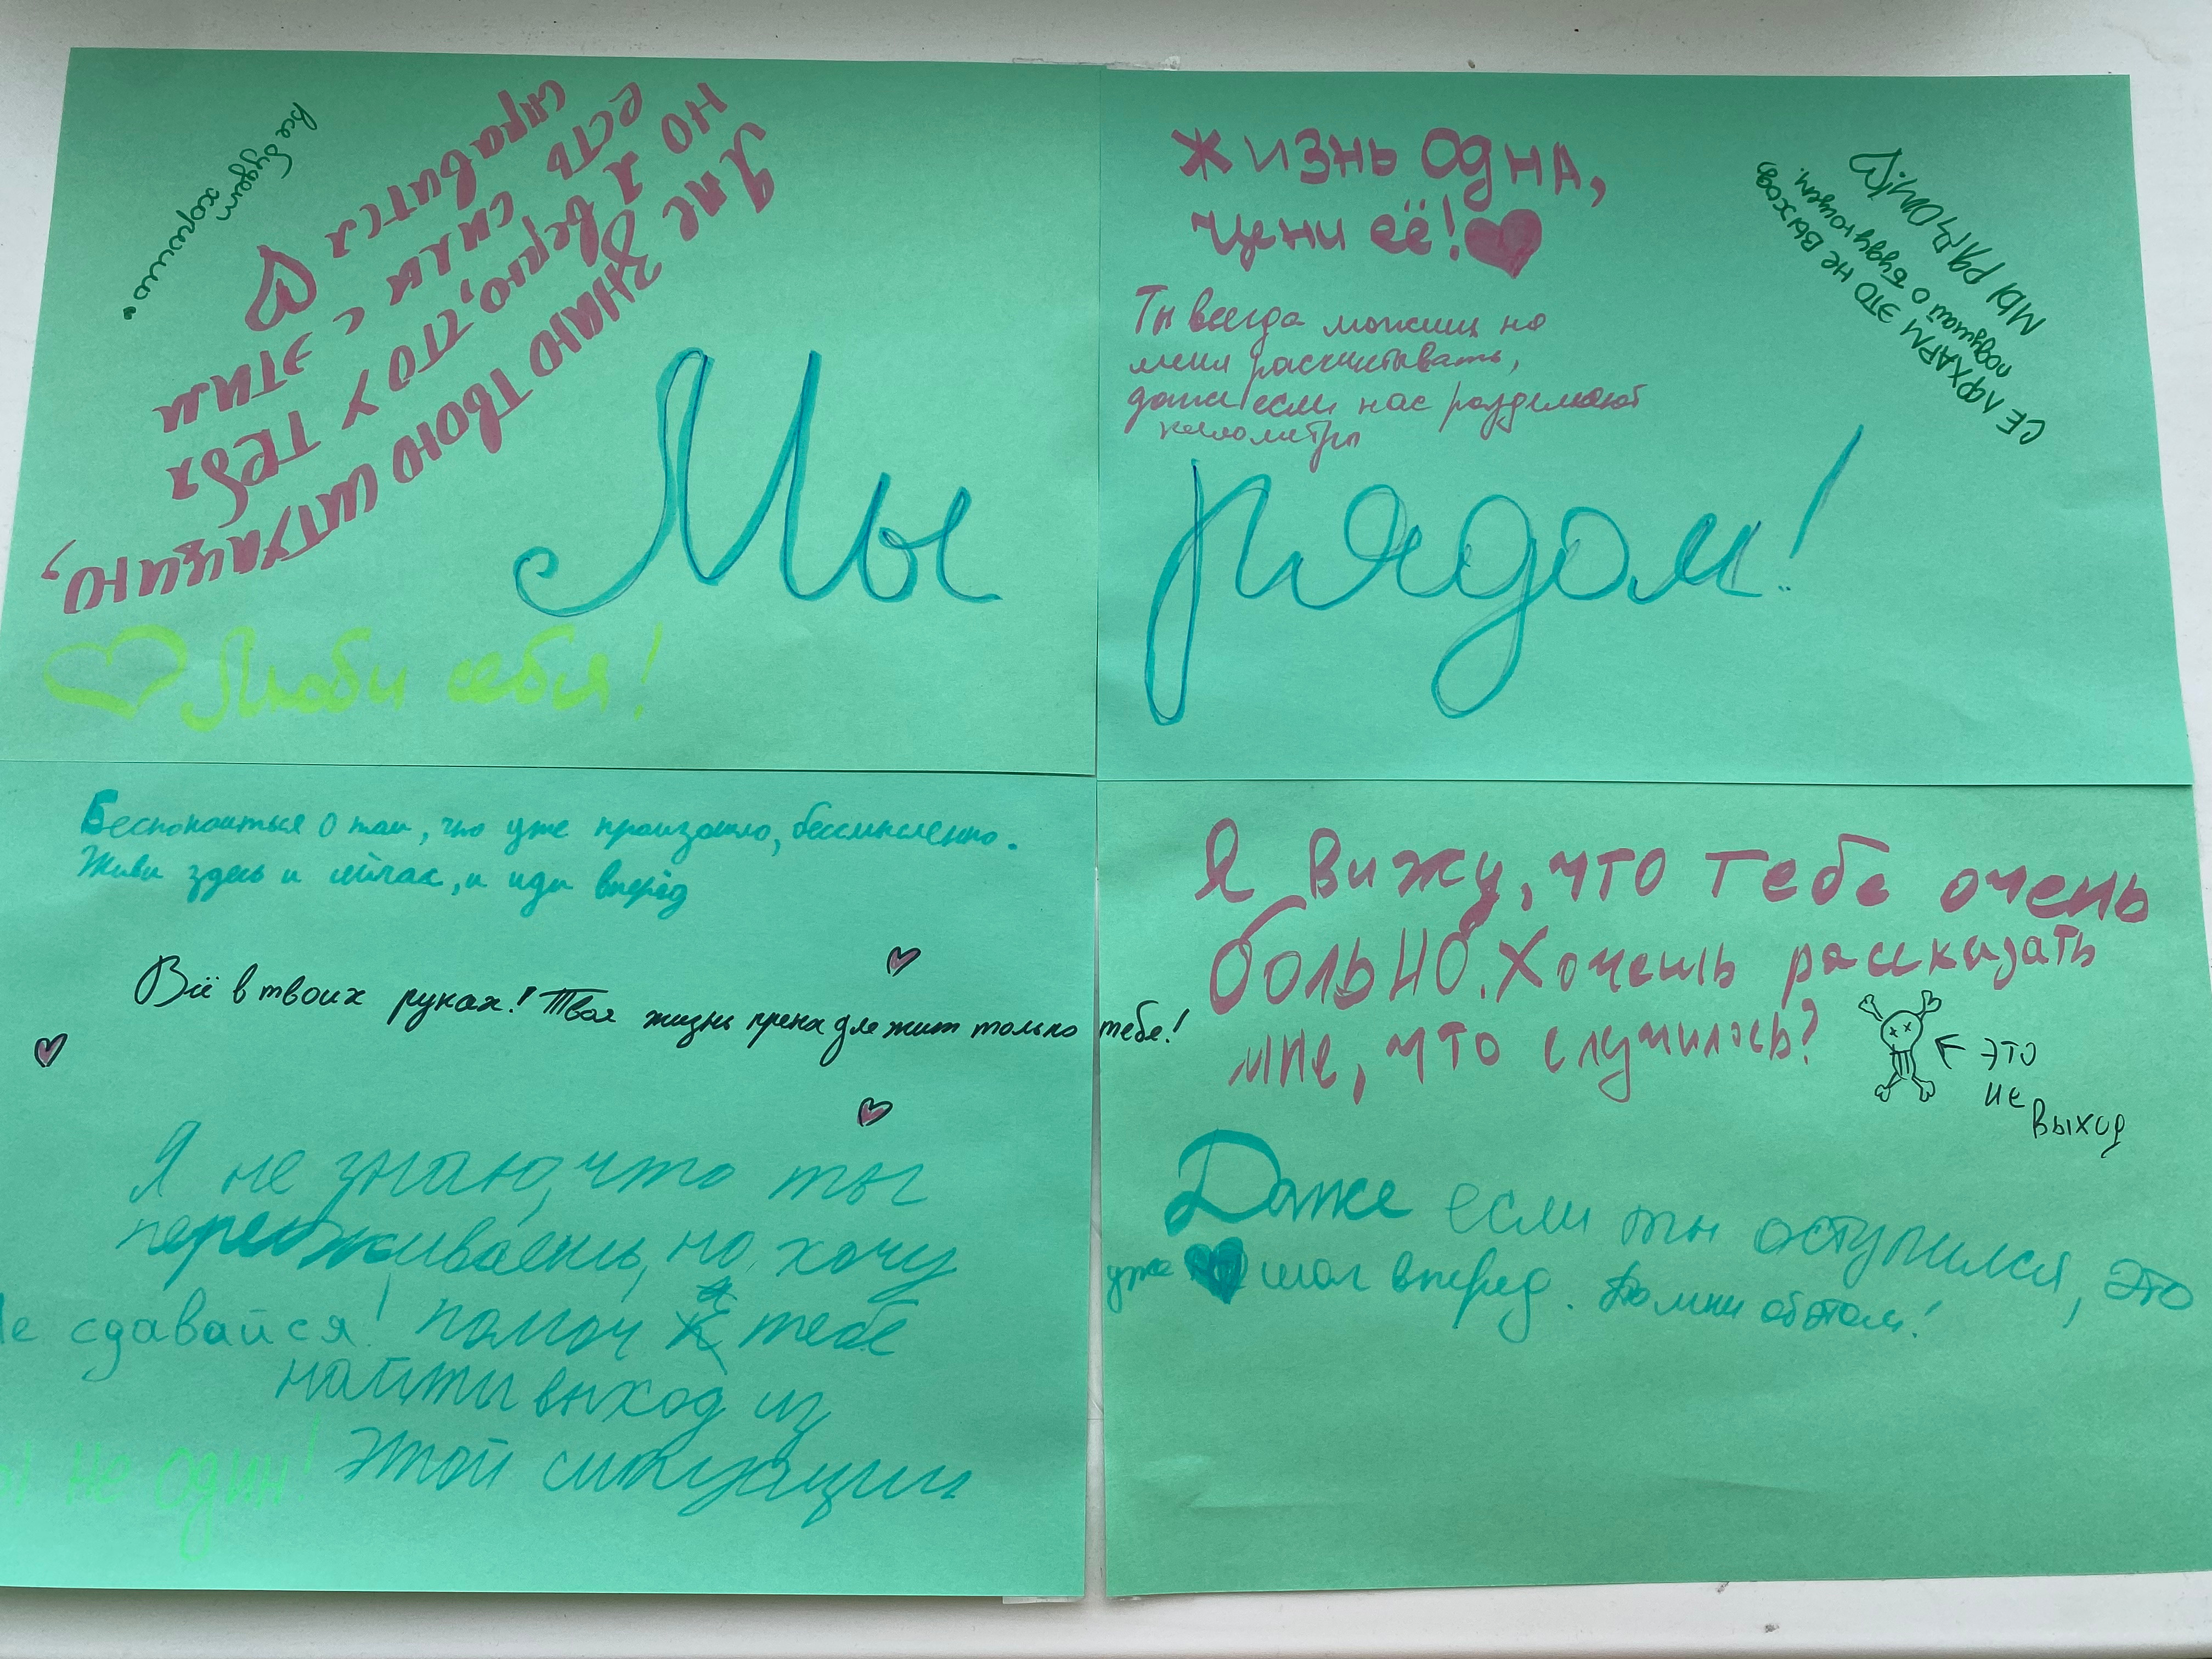 все будет
хорошо"
Я не знаю твою ситуацию,
но я верю, что у тебя
есть силы с этим
справится
Мы
Люби себя!
Жизнь одна,
цени её!
Ты всегда можешь на
меня расчитывать,
даже если нас разделяют
километры
СЕЛФХАРМ ЭТО НЕ ВЫХОД,
подумай о будующем.
МЫ РЯДОМ!
рядом!
Беспокоиться о том, что уже произошло, бессмысленно.
Живи здесь и сейчас, и иди вперёд
Всё в твоих руках! Твоя жизнь принадлежит только тебе!
Я не знаю, что ты
переживаешь, но хочу
помоч тебе
найти выход из
этой ситуации
Не сдавайся!
ы не один!
Я вижу, что тебе очень
больно. Хочешь рассказать
мне, что случилось?
это
не
выход
Даже если ты оступился, это
уже шаг вперед. Помни об этом!